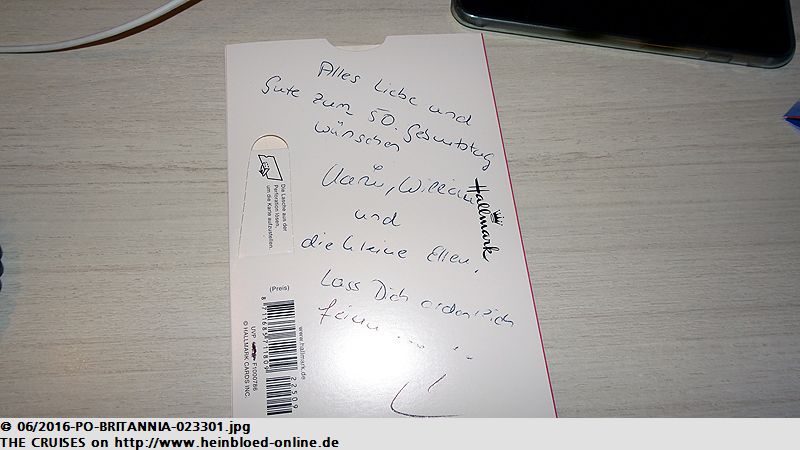 Alles Liebe und
Gute zum 50. Geburtstag
wünschen
Karin, William
und
die kleine Ellen.
Lass Dich ordentlich
feiern .... ..
Hallmark
Die Lasche aus der
Perforation lösen,
um die Karte aufzustellen.
(Preis)
www.hallmark.de
22509
UVP F1000786
© HALLMARK CARDS INC.
© 06/2016-PO-BRITANNIA-023301.jpg
THE CRUISES on http://www.heinbloed-online.de